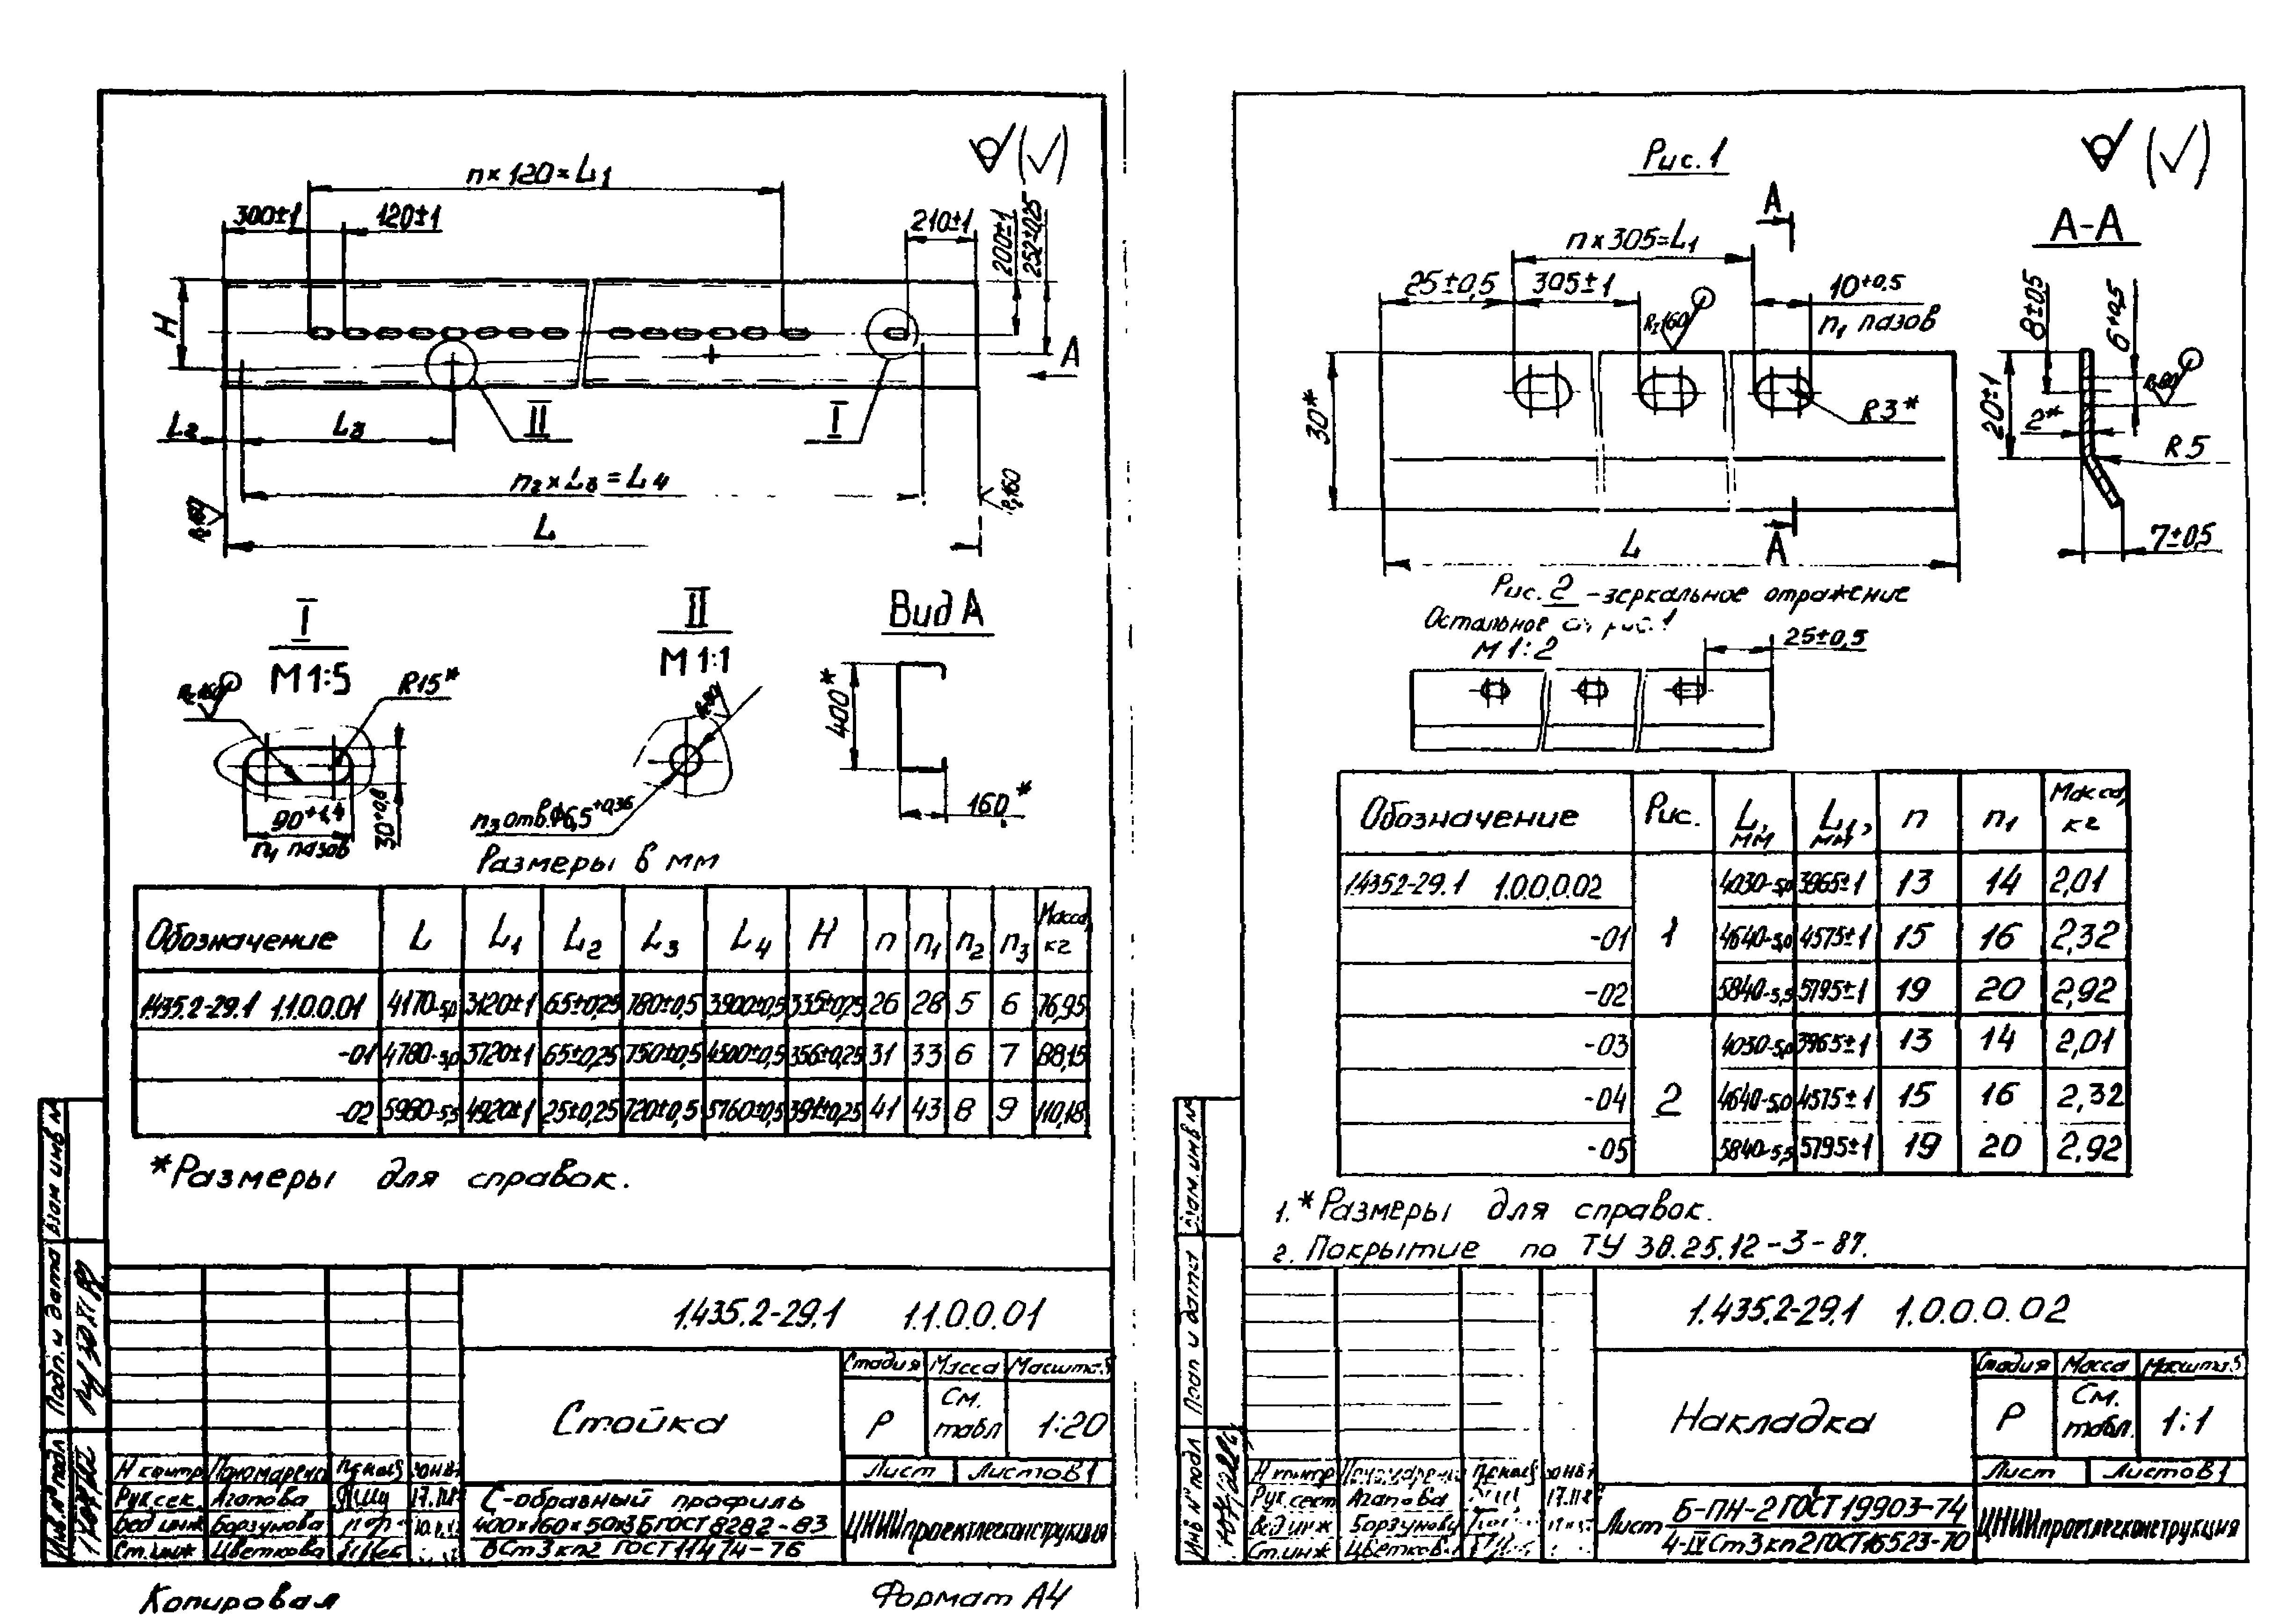 n×120=L1
300±1
120±1
210±1
200±1
252±0,25
H
A
L2
L3
II
I
n2×L3=L4
Rz160
Rz160
L
I
М1:5
Rz160
R15*
90+1,4
n1 пазов
30+0,8
II
М1:1
n3 отв.Ф6,5+0,36
Вид А
400*
160*
Размеры в мм
Обозначение L L1 L2 L3 L4 H n n1 n2 n3 Масса, кг
1.435.2-29.1 1.1.0.0.01 4170-5,0 3120±1 65±0,25 780±0,5 3900±0,5 335±0,25 26 28 5 6 76,95
-01 4780-5,0 3720±1 65±0,25 750±0,5 4500±0,5 356±0,25 31 33 6 7 88,15
-02 5980-5,5 4920±1 25±0,25 720±0,5 5760±0,5 391±0,25 41 43 8 9 110,18
*Размеры для справок.
1.435.2-29.1 1.1.0.0.01
Стойка
Стадия Масса Масштаб
Р См. табл 1:20
Лист Листов 1
Н контр Пономарева
Рук.сек. Агапова
Вед инж Борзунова
Ст.инж Цветкова
С-образный профиль
400×160×50×3 Б ГОСТ 8282-83
ВСт3кп2 ГОСТ 11474-76
ЦНИИпроектлегконструкция
Инв.№ подл
Подп. и дата
Взам инв №
Копировал
Формат А4
Рис.1
А
n×305=L1
25±0,5
305±1
10+0.5
n1 пазов
Rz160
R3*
30*
А
L
А-А
8±0,5
6+0,5
20±1
2*
R5
7±0,5
Рис.2 -зеркальное отражение
Остальное см рис.1
М 1:2
25±0,5
Обозначение Рис. L, мм L1, мм n n1 Масса, кг
1.435.2-29.1 1.0.0.0.02 1 4030-5,0 3965±1 13 14 2,01
-01 4640-5,0 4575±1 15 16 2,32
-02 5840-5,5 5795±1 19 20 2,92
-03 2 4030-5,0 3965±1 13 14 2,01
-04 4640-5,0 4575±1 15 16 2,32
-05 5840-5,5 5795±1 19 20 2,92
1.*Размеры для справок.
2. Покрытие по ТУ 38.25.12-3-87.
1.435.2-29.1 1.0.0.0.02
Накладка
Стадия Масса Масштаб
Р См. табл. 1:1
Лист Листов 1
Н контр
Рук.сект Агапова
Вед инж Борзунову
Ст.инж Цветков
Лист Б-ПН-2 ГОСТ 19903-74
4-IV Ст3кп2 ГОСТ 16523-70
ЦНИИпроектлегконструкция
Инв № подл
и дата
инв №